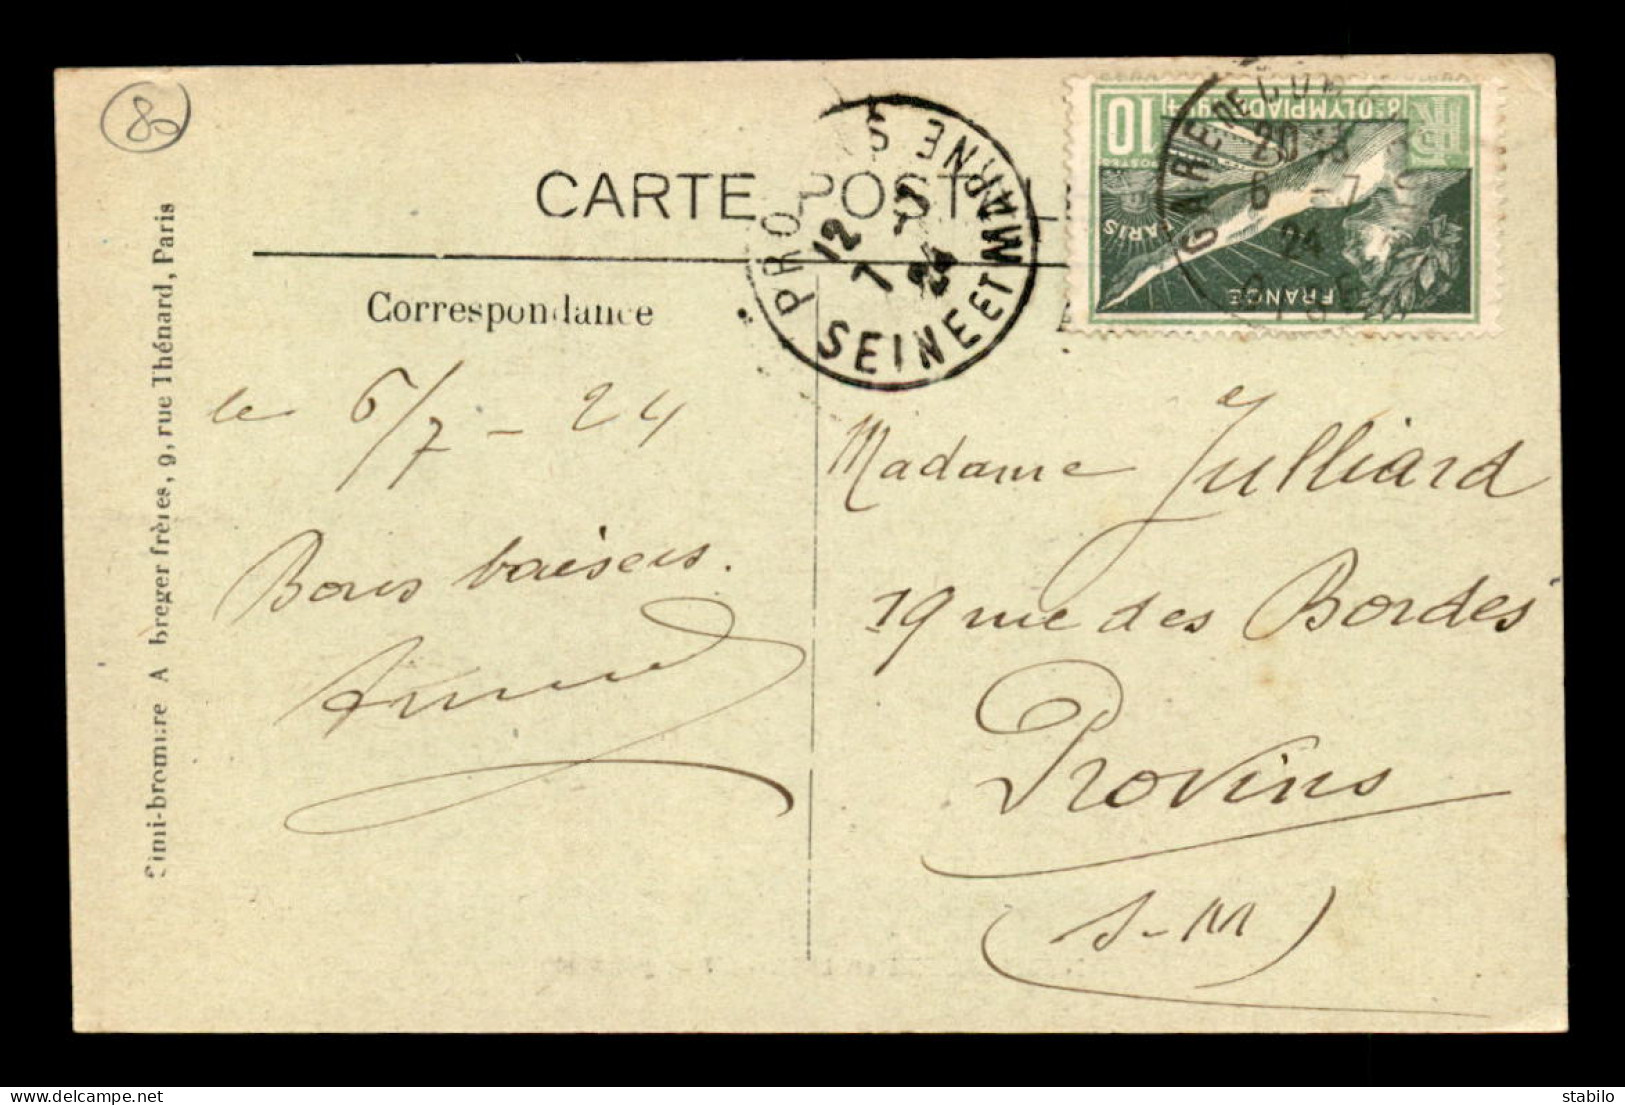 80
CARTE POSTALE
Correspondance
Simi-bromure A. Breger frères, 9, rue Thénard, Paris
PROVINS
SEINE ET MARNE
12
7
24
10
8e OLYMPIADE 1924
POSTES
PARIS
FRANCE
GARE DE
20
6 -7
24
le 6/7 - 24
Bons baisers.
Madame Julliard
19 rue des Bordes
Provins
(S-M)
delcampe.net
stabilo